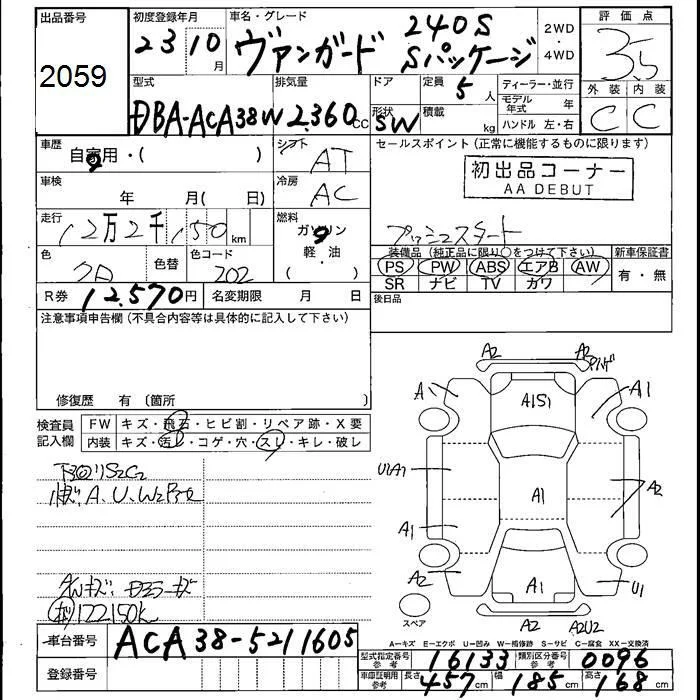 出品番号 2059
初度登録年月 23 10月
車名・グレード ヴァンガード 240S Sパッケージ
2WD・4WD
評価点 3.5
外装 C 内装 C
型式 DBA-ACA38W
排気量 2,360cc
ドア
形状 SW
定員 5人
積載 kg
ディーラー・並行
モデル年式 年
ハンドル 左・右
車歴 自家用・( )
シフト AT
セールスポイント (正常に機能するものに限ります)
初出品コーナー
AA DEBUT
車検 年 月( 日)
冷房 AC
走行 12万2千150km
燃料 ガソリン 軽・油 ・( )
プッシュスタート
色 クロ
色替
色コード 202
装備品 (純正品に限り○をつけて下さい)
新車保証書 有・無
PS PW ABS エアB AW
SR ナビ TV カワ
R券 12,570円
名変期限 月 日
後日品
注意事項申告欄 (不具合内容等は具体的に記入して下さい)
修復歴 有 〔箇所 〕
検査員記入欄
FW キズ・飛石・ヒビ割・リペア跡・X要
内装 キズ・汚れ・コゲ・穴・スレ・キレ・破レ
S2C2
A、U、W2
122150k
A2 A2
A A1S1 A1
U1A1 A1 A2
A1
A2 A1 U1
スペア
A2 A2U2
A－キズ E－エクボ U－凹み W－補修跡 S－サビ C－腐食 XX－交換済
車台番号 ACA38-5211605
登録番号
型式指定番号 参考 16133
類別区分番号 参考 0096
車庫証明用 参考 長さ 457cm 幅 185cm 高さ 168cm